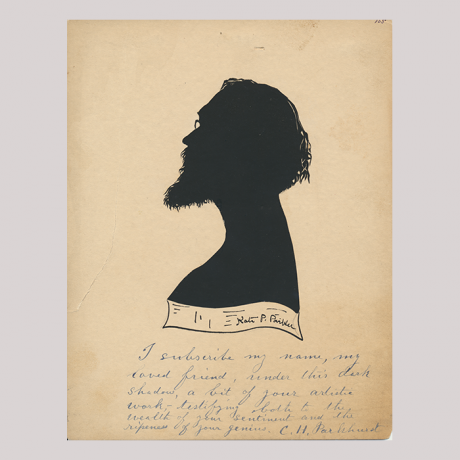 Kate P. Parker
I subscribe my name, my
loved friend, under this dark
shadow, a bit of your artistic
work,- testifying both to the
wealth of your sentiment and the
ripeness of your genius. C. H. Parkhurst